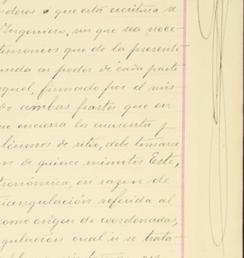 que esta escritura se
Ingeniero, sin que sea nece
timonios que de la presente
en poder de cada parte
firmado por el mis
ambas partes que en
encierra la cuarenta y
de sitio, debe tomarse
de quince minutos Este,
tronómica, en razon de
triangulación referida al
como origen de coordenadas,
gulación cual si se trata